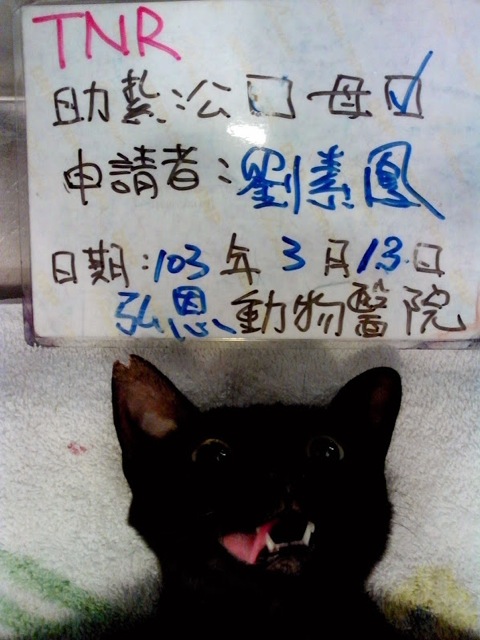 TNR
助紮:公□ 母☑
申請者:劉素鳳
日期:103年3月13日
弘恩動物醫院